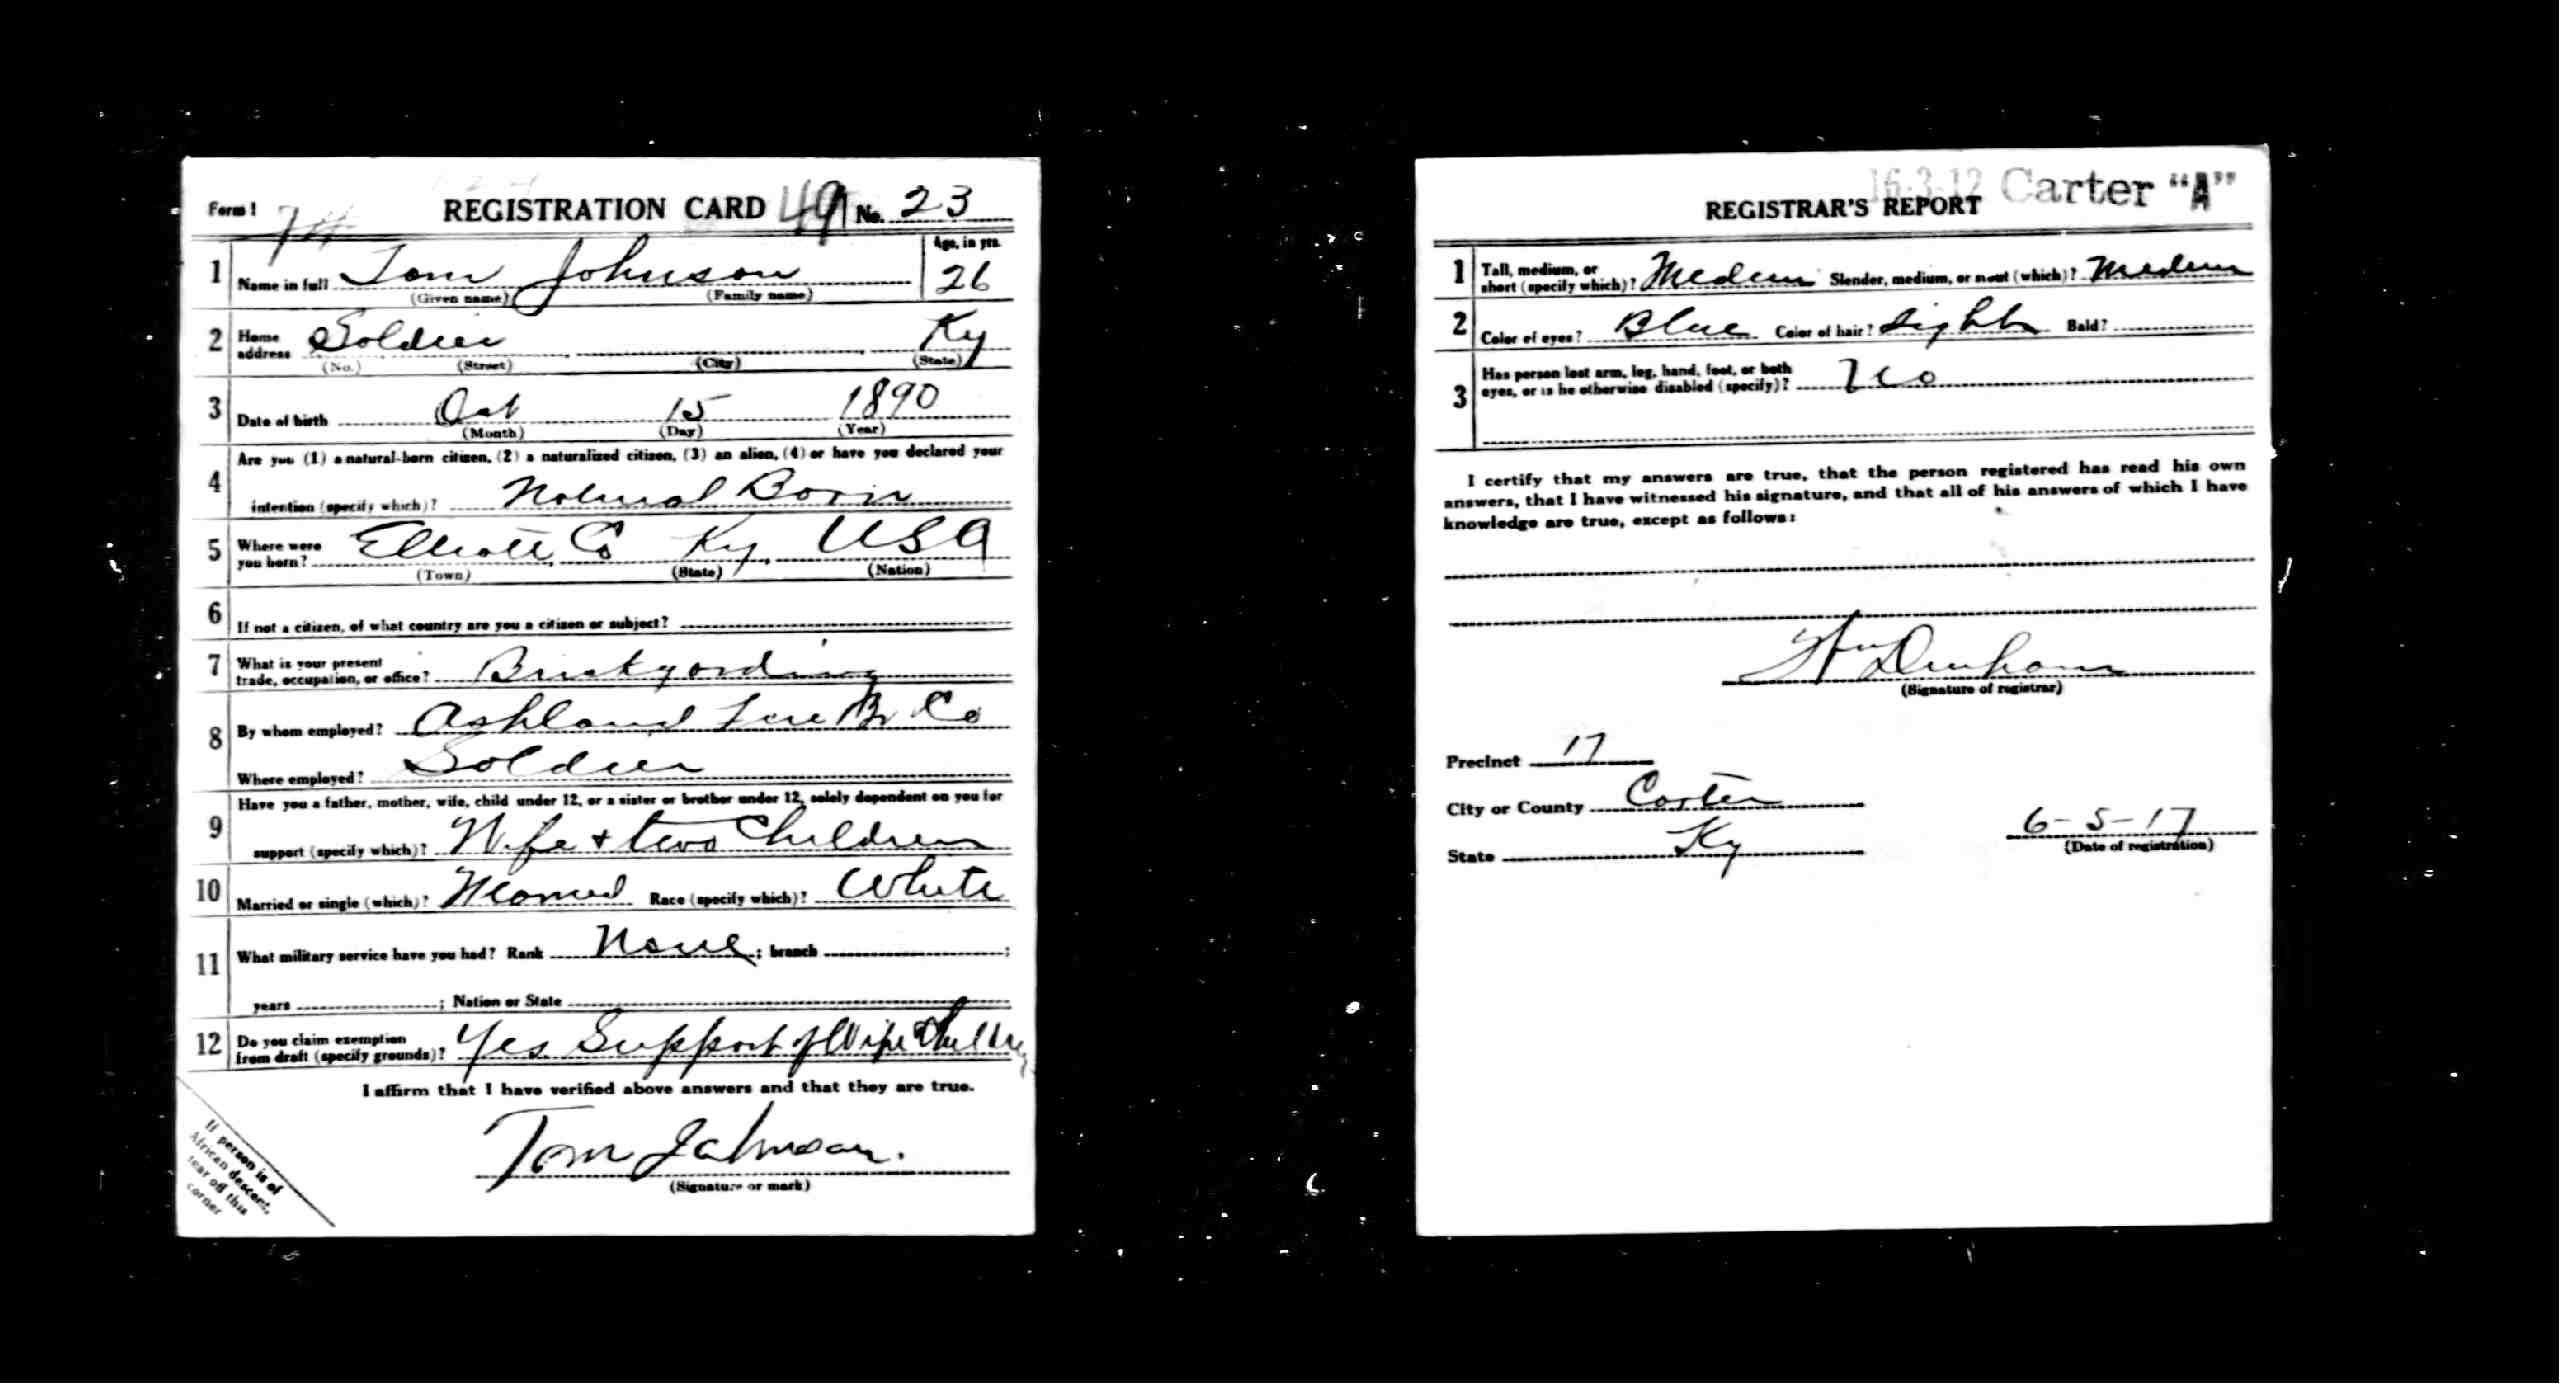 Form 1 74 REGISTRATION CARD 49 No. 23
1 Name in full Tom Johnson Age, in yrs. 26
(Given name) (Family name)
2 Home address Soldier Ky
(No.) (Street) (City) (State)
3 Date of birth Oct 15 1890
(Month) (Day) (Year)
4 Are you (1) a natural-born citizen, (2) a naturalized citizen, (3) an alien, (4) or have you declared your
intention (specify which)? Natural Born
5 Where were you born? Elliott Co Ky, USA
(Town) (State) (Nation)
6 If not a citizen, of what country are you a citizen or subject?
7 What is your present trade, occupation, or office? Brickyarding
8 By whom employed? Ashland Fire Br Co
Where employed? Soldier
9 Have you a father, mother, wife, child under 12, or a sister or brother under 12, solely dependent on you for
support (specify which)? Wife + two Children
10 Married or single (which)? Married Race (specify which)? White
11 What military service have you had? Rank None ; branch ;
years ; Nation or State
12 Do you claim exemption from draft (specify grounds)? Yes Support of Wife & Children
I affirm that I have verified above answers and that they are true.
Tom Johnson.
(Signature or mark)
If person is of
African descent,
tear off this
corner
16-3-12 Carter "A"
REGISTRAR'S REPORT
1 Tall, medium, or short (specify which)? Medium Slender, medium, or stout (which)? Medium
2 Color of eyes? Blue Color of hair? Light Bald?
3 Has person lost arm, leg, hand, foot, or both
eyes, or is he otherwise disabled (specify)? No
I certify that my answers are true, that the person registered has read his own
answers, that I have witnessed his signature, and that all of his answers of which I have
knowledge are true, except as follows:
Wm Durham
(Signature of registrar)
Precinct 17
City or County Carter
State Ky 6-5-17
(Date of registration)